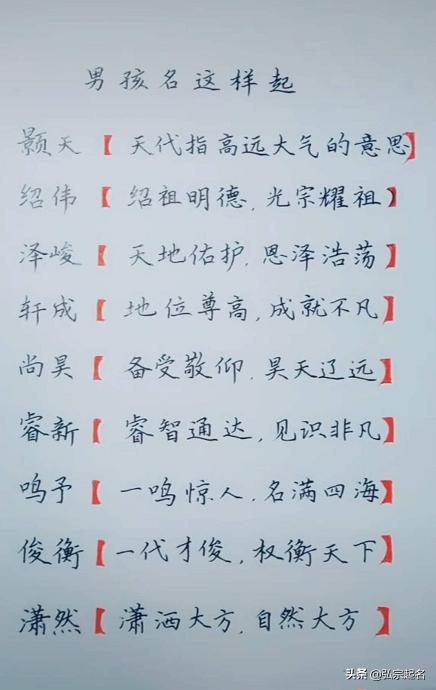 男孩名这样起
颢天【天代指高远大气的意思】
绍伟【绍祖明德,光宗耀祖】
泽峻【天地佑护,恩泽浩荡】
轩成【地位尊高,成就不凡】
尚昊【备受敬仰,昊天辽远】
睿新【睿智通达,见识非凡】
鸣予【一鸣惊人,名满四海】
俊衡【一代才俊,权衡天下】
潇然【潇洒大方,自然大方】
头条 @弘宗起名